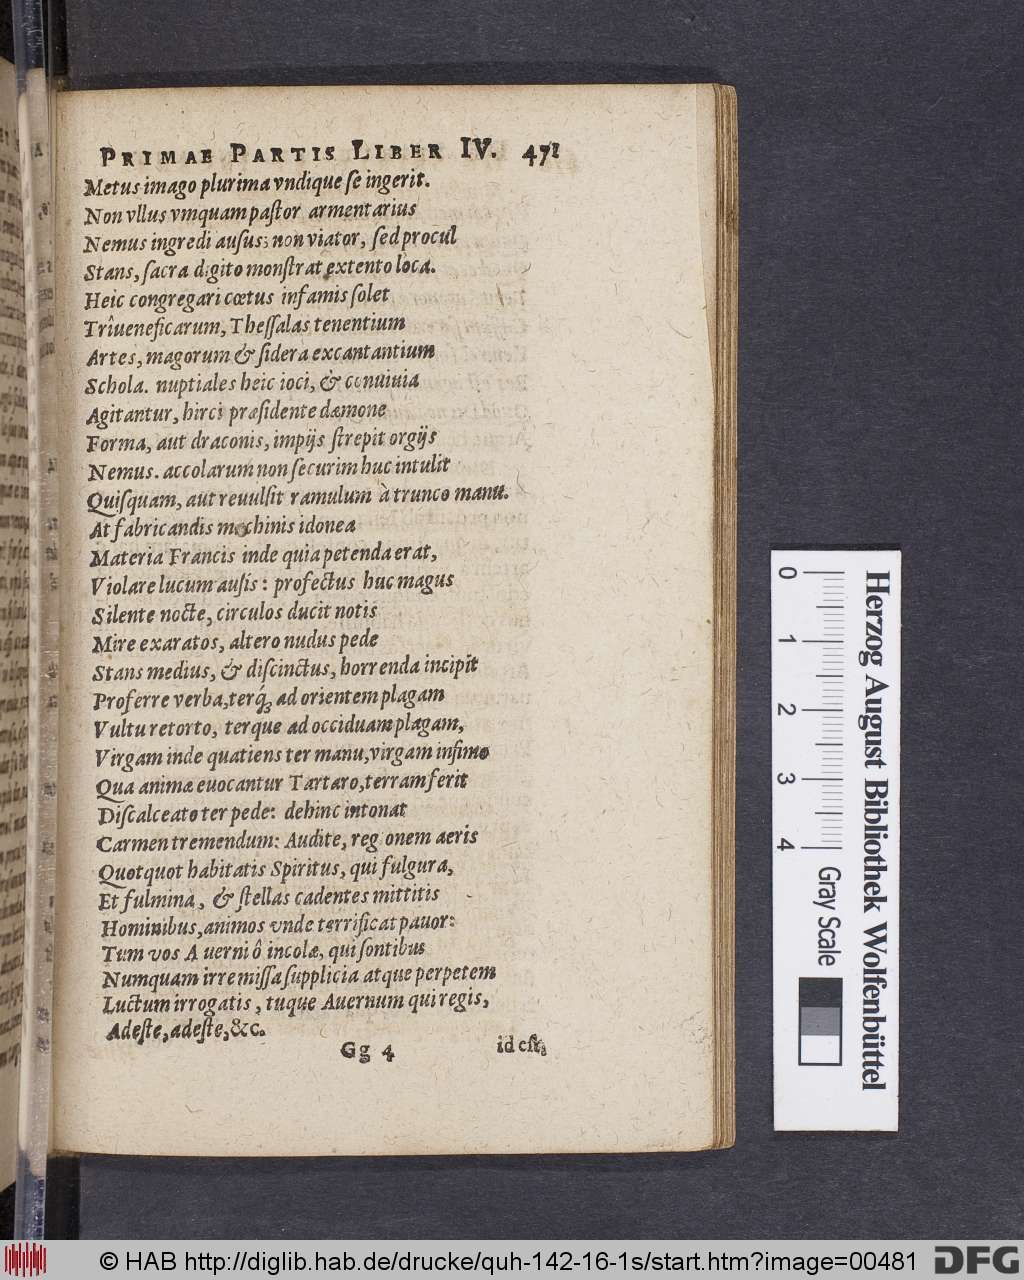 PRIMAE PARTIS LIBER IV. 471
Metus imago plurima vndique se ingerit.
Non vllus vmquam paſtor armentarius
Nemus ingredi auſus; non viator, ſed procul
Stans, ſacra digito monſtrat extento loca.
Heic congregari cœtus infamis ſolet
Trîueneficarum, Theſſalas tenentium
Artes, magorum & ſidera excantantium
Schola. nuptiales heic ioci, & conuiuia
Agitantur, hirci præſidente dæmone
Forma, aut draconis, impijs ſtrepit orgijs
Nemus. accolarum non ſecurim huc intulit
Quiſquam, aut reuulſit ramulum à trunco manu.
At fabricandis machinis idonea
Materia Francis inde quia petenda erat,
Violare lucum auſis: profectus huc magus
Silente nocte, circulos ducit notis
Mire exaratos, altero nudus pede
Stans medius, & diſcinctus, horrenda incipit
Proferre verba, terq́; ad orientem plagam
Vultu retorto, terque ad occiduam plagam,
Virgam inde quatiens ter manu, virgam inſimo
Qua animæ euocantur Tartaro, terram ferit
Diſcalceato ter pede: dehinc intonat
Carmen tremendum: Audite, regionem aeris
Quotquot habitatis Spiritus, qui fulgura,
Et fulmina, & ſtellas cadentes mittitis
Hominibus, animos vnde terrificat pauor:
Tum vos Auerni ô incolæ, qui ſontibus
Numquam irremiſſa ſupplicia atque perpetem
Luctum irrogatis, tuque Auernum qui regis,
Adeſte, adeſte, &c.
Gg 4 id eſt,
0 1 2 3 4
Herzog August Bibliothek Wolfenbüttel
Gray Scale
© HAB http://diglib.hab.de/drucke/quh-142-16-1s/start.htm?image=00481 DFG